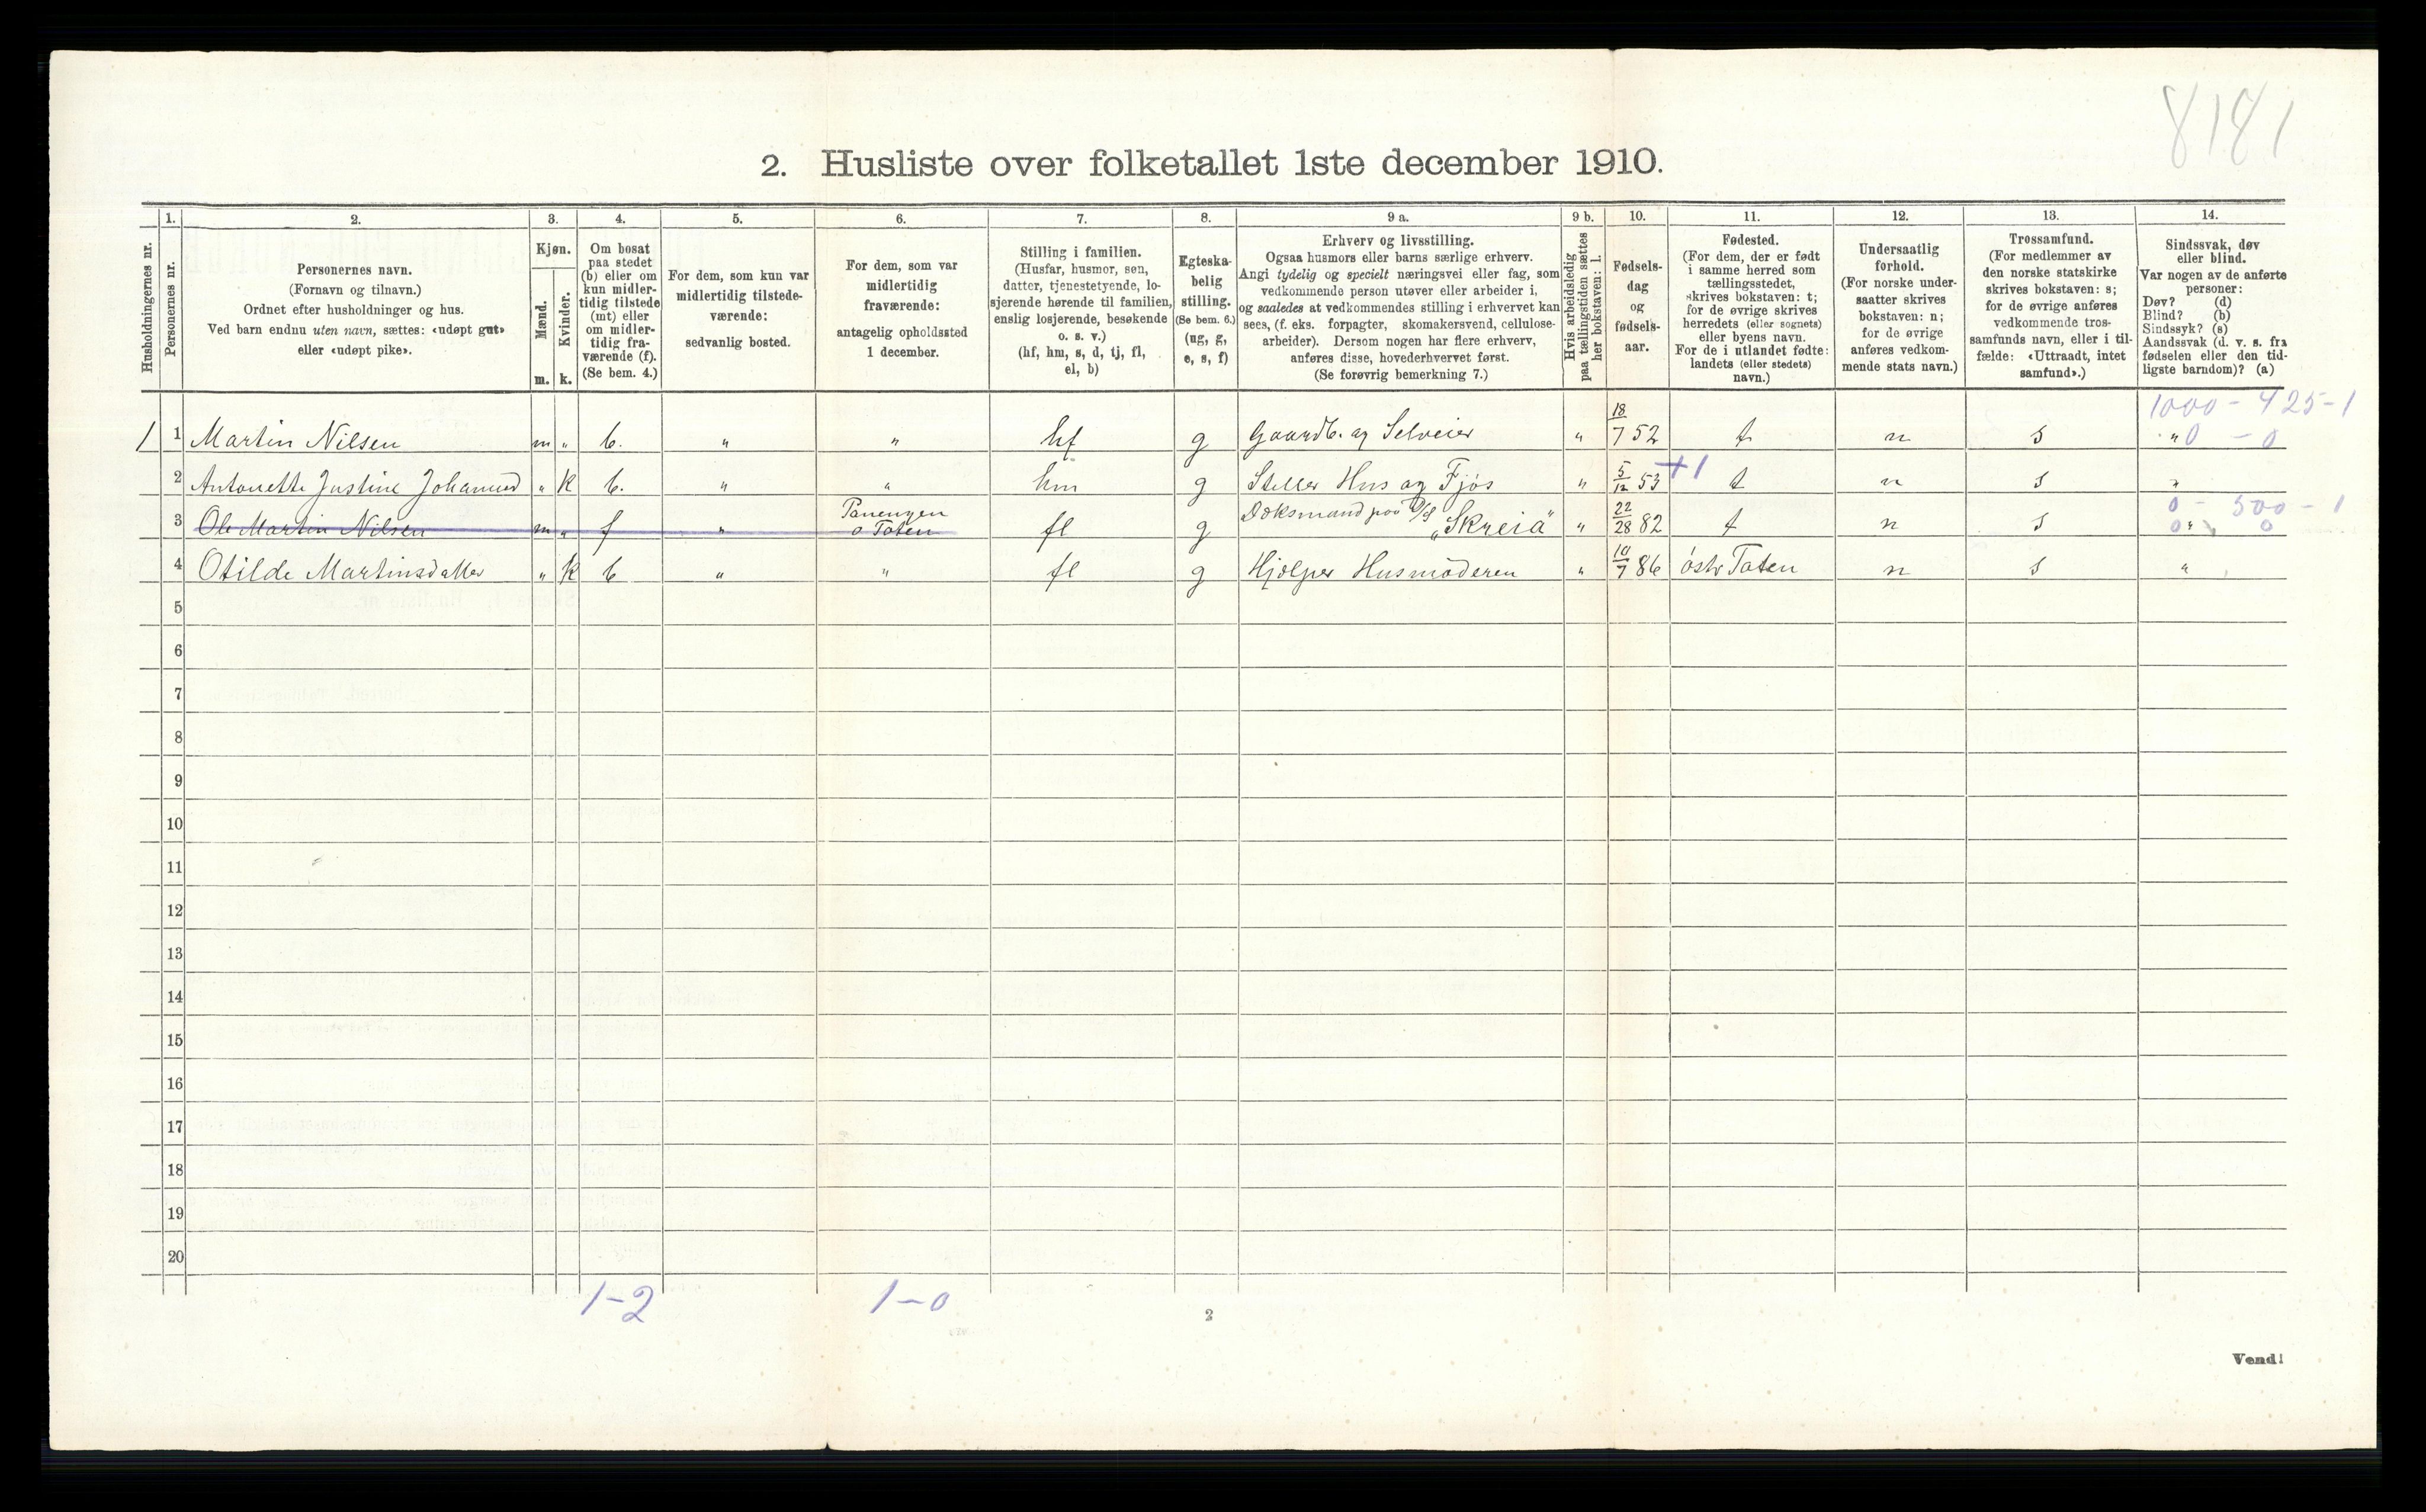 8181
2. Husliste over folketallet 1ste december 1910.
Husholdningernes nr.
1. Personernes nr.
2. Personernes navn. (Fornavn og tilnavn.) Ordnet efter husholdninger og hus. Ved barn endnu uten navn, sættes: «udøpt gut» eller «udøpt pike».
3. Kjøn. Mænd. m. Kvinder. k.
4. Om bosat paa stedet (b) eller om kun midler-tidig tilstede (mt) eller om midler-tidig fra-værende (f). (Se bem. 4.)
5. For dem, som kun var midlertidig tilstede-værende: sedvanlig bosted.
6. For dem, som var midlertidig fraværende: antagelig opholdssted 1 december.
7. Stilling i familien. (Husfar, husmor, søn, datter, tjenestetyende, lo-sjerende hørende til familien, enslig losjerende, besøkende o. s. v.) (hf, hm, s, d, tj, fl, el, b)
8. Egteska-belig stilling. (Se bem. 6.) (ug, g, e, s, f)
9 a. Erhverv og livsstilling. Ogsaa husmors eller barns særlige erhverv. Angi tydelig og specielt næringsvei eller fag, som vedkommende person utøver eller arbeider i, og saaledes at vedkommendes stilling i erhvervet kan sees, (f. eks. forpagter, skomakersvend, cellulose-arbeider). Dersom nogen har flere erhverv, anføres disse, hovederhvervet først. (Se forøvrig bemerkning 7.)
9 b. Hvis arbeidsledig paa tællingstiden sættes her bokstaven: l.
10. Fødsels-dag og fødsels-aar.
11. Fødested. (For dem, der er født i samme herred som tællingsstedet, skrives bokstaven: t; for de øvrige skrives herredets (eller sognets) eller byens navn. For de i utlandet fødte: landets (eller stedets) navn.)
12. Undersaatlig forhold. (For norske under-saatter skrives bokstaven: n; for de øvrige anføres vedkom-mende stats navn.)
13. Trossamfund. (For medlemmer av den norske statskirke skrives bokstaven: s; for de øvrige anføres vedkommende tros-samfunds navn, eller i til-fælde: «Uttraadt, intet samfund».)
14. Sindssvak, døv eller blind. Var nogen av de anførte personer: Døv? (d) Blind? (b) Sindssyk? (s) Aandssvak (d. v. s. fra fødselen eller den tid-ligste barndom)? (a)
1000 - 425 - 1
1 1 Martin Nilsen m „ b. „ „ hf g Gaardb. og Selveier „ 18/7 52 t n s „ 0 - 0
2 Antonette Justine „ k b. „ „ hm g Steller Hus og Fjøs „ 5/12 53 +1 t n s „
0 - 500 - 1
3 Ole Martin Nilsen m „ f „ o Toten fl g Doksmand paa D/S „Skreia" „ 22/28 82 t n s 0 „ 0
4 Otilde Martinsdatter „ k b „ „ fl g Hjelper Husmoderen „ 10/7 86 östr Toten n s „
5
6
7
8
9
10
11
12
13
14
15
16
17
18
19
20
1-2 1-0
2
Vend!